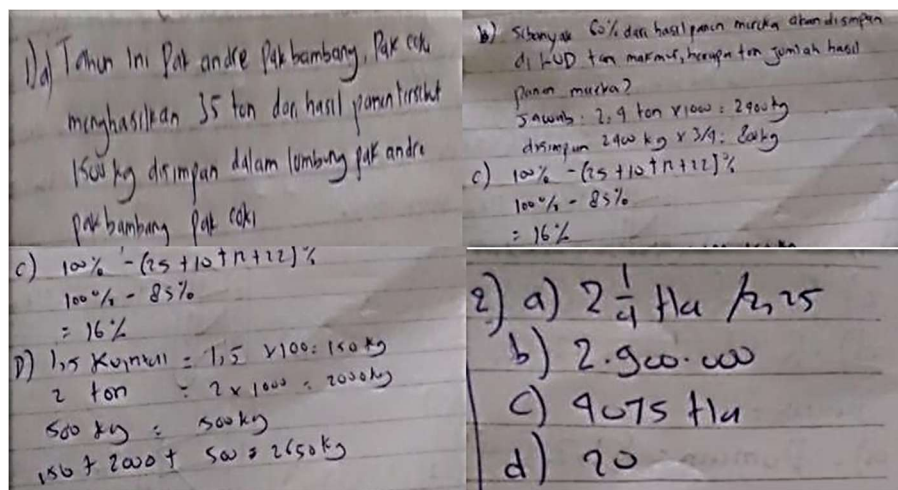 1) a) Tahun Ini Pak andre Pak bambang, Pak coki
menghasilkan 35 ton dari hasil panen tersebut
1500 kg disimpan dalam lumbung pak andre
pak bambang pak coki
b) Sebanyak 60% dari hasil panen mereka akan disimpan
di KUD tan makmur, berapa ton jumlah hasil
panen mereka?
Jawab : 2,4 ton x 1000 : 2400 kg
disimpan 2400 kg x 3/4 : 800kg
c) 100% - (25 + 10 + 12 + 22) %
100% - 85%
= 16%
C) 100% - (25 + 10 + 12 + 22) %
100% - 85%
= 16%
D) 1,5 Kuintal = 1,5 x 100 : 150 kg
2 ton : 2 x 1000 = 2000kg
500 kg = 500kg
150 + 2000 + 500 = 2650 kg
2) a) 2 1/4 Ha / 2,25
b) 2.900.000
c) 4075 Ha
d) 20